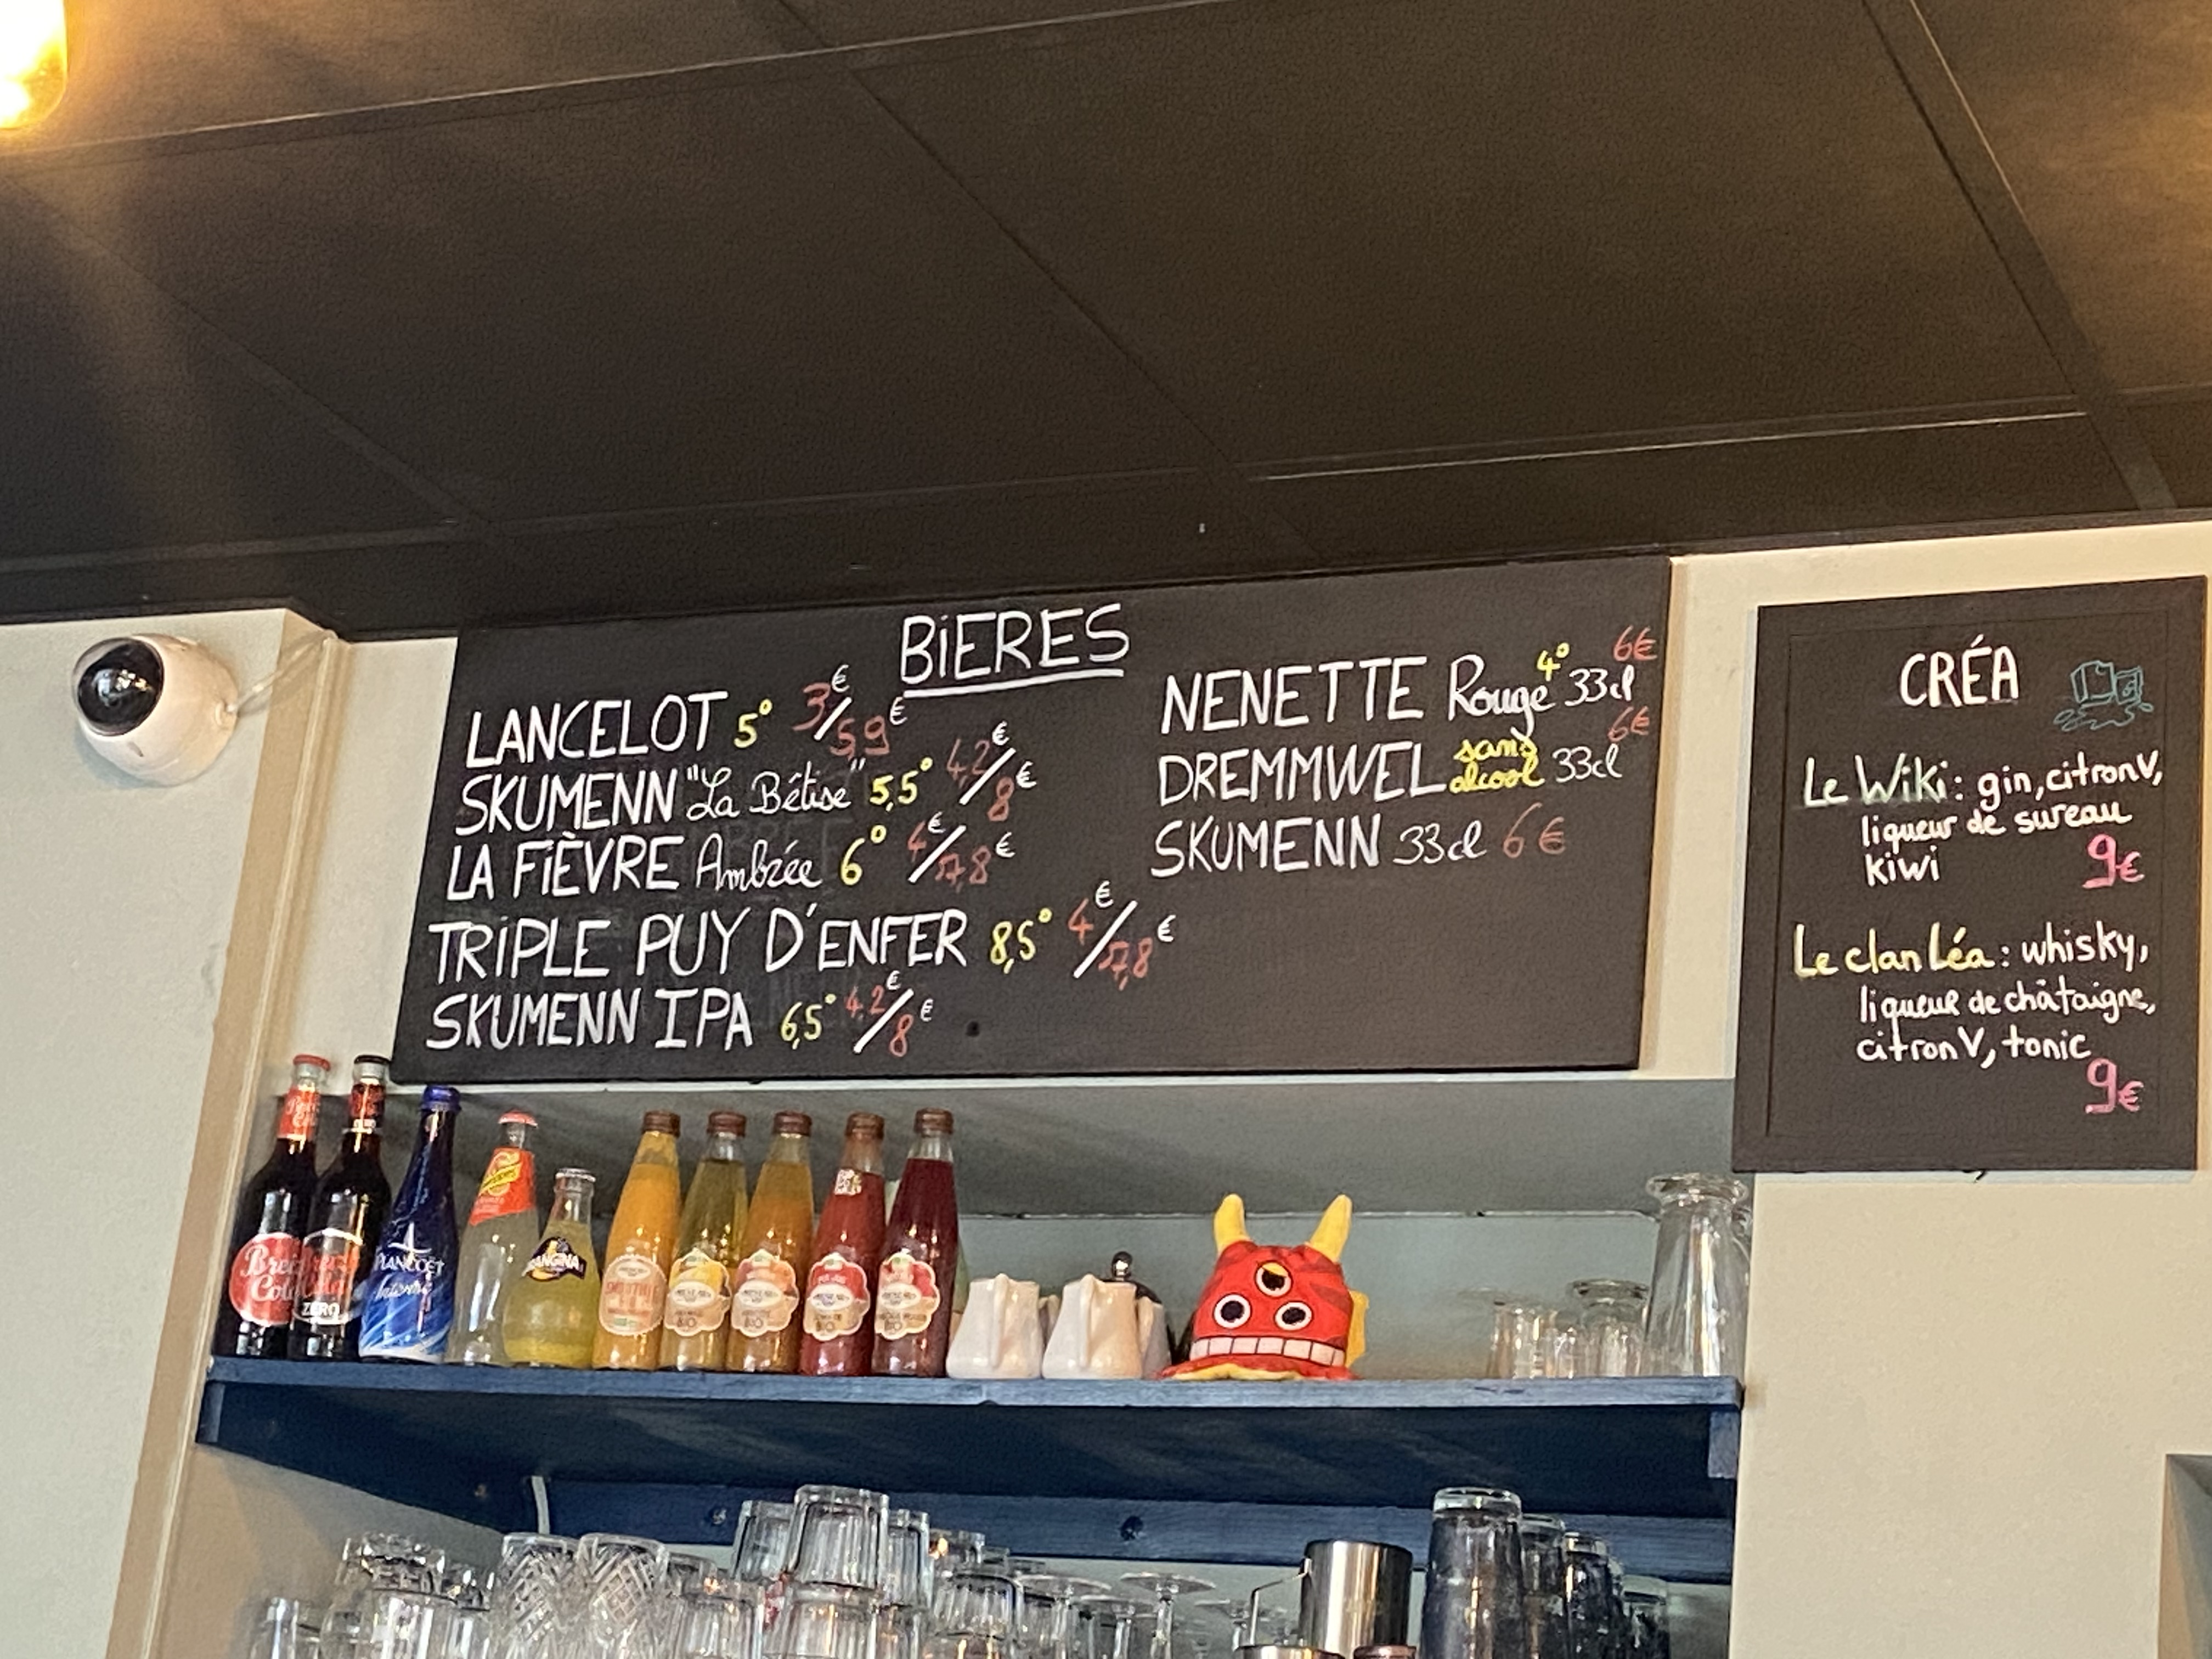 BiERES
LANCELOT 5° 3€/5,9€
SKUMENN "La Bêtise" 5,5° 4,2€/8€
LA FiÈVRE Ambrée 6° 4€/7,8€
TRiPLE PUY D'ENFER 8,5° 4€/7,8€
SKUMENN IPA 6,5° 4,2€/8€
NENETTE Rouge 4° 33cl 6€
DREMMWEL sans alcool 33cl 6€
SKUMENN 33cl 6€
CRÉA
Le Wiki : gin, citron V,
liqueur de sureau
kiwi 9€
Le clan Léa : whisky,
liqueur de châtaigne,
citron V, tonic
9€
Breizh Cola
ZERO
PLANCOËT
Intense
ORANGINA